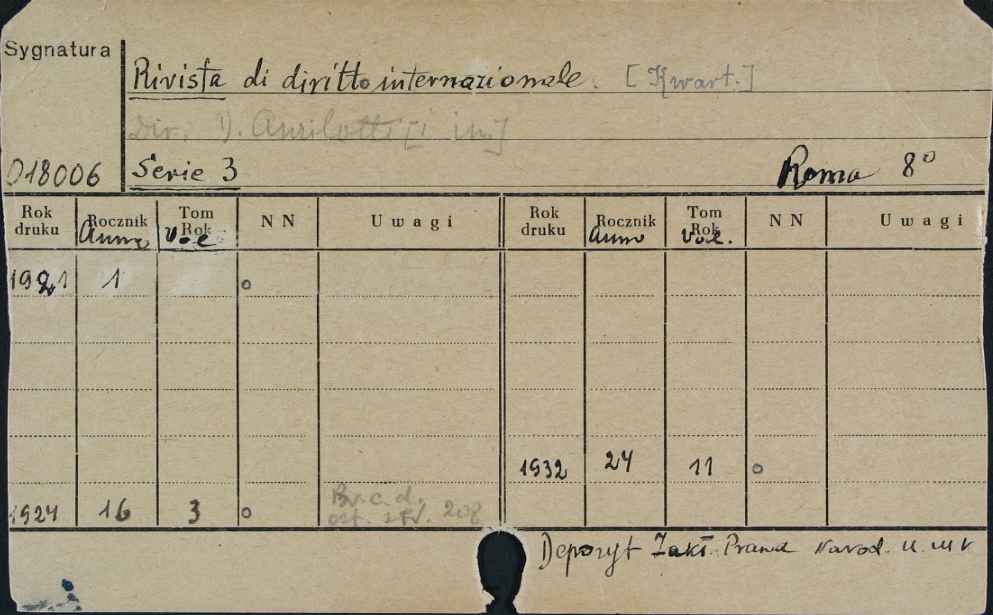 Sygnatura
Rivista di diritto internazionale. [Kwart.]
Dir. D. Anzilotti [i in.]
D18006 Serie 3 Roma 8°
Rok druku Rocznik Anno Tom Rok Vol NN Uwagi Rok druku Rocznik Anno Tom Rok Vol. NN Uwagi
1921 1 o
1932 24 11 o
1924 16 3 o
Depozyt Zakł. Prawa Narod.